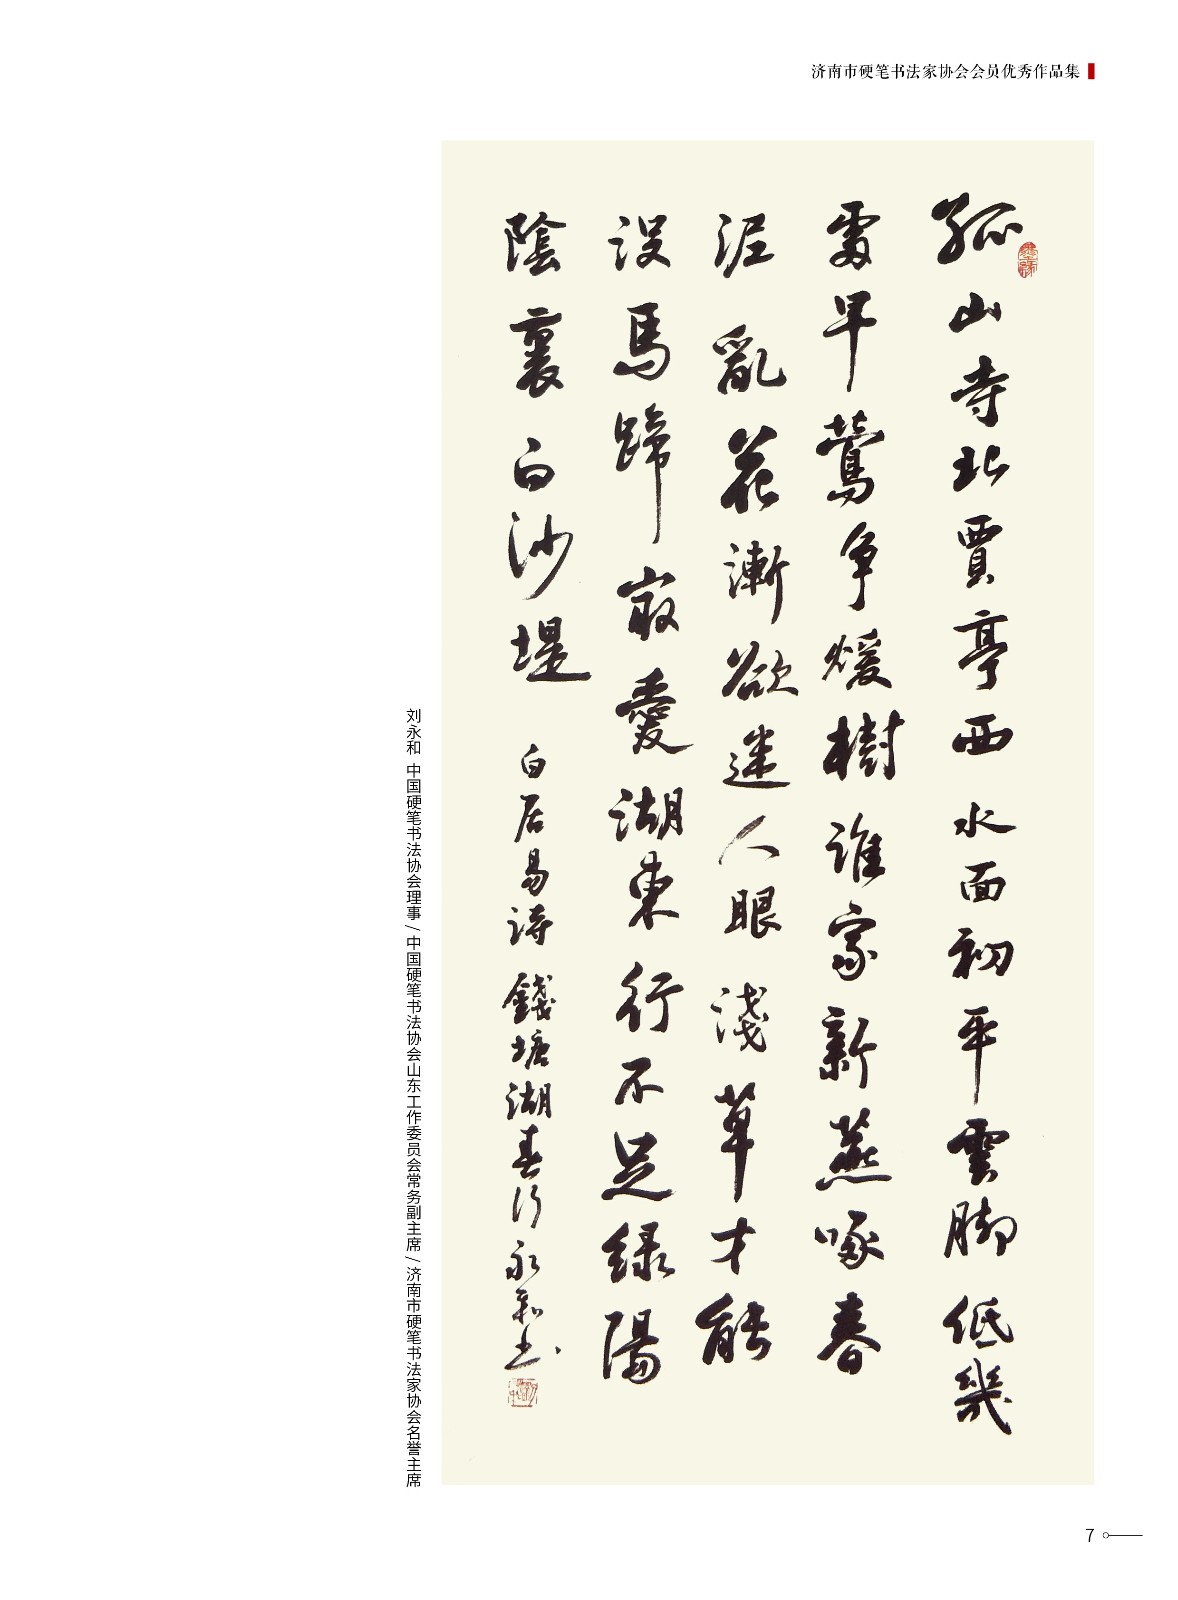 济南市硬笔书法家协会会员优秀作品集
孤山寺北賈亭西水面初平雲脚低幾
處早鶯争煖樹誰家新燕啄春
泥亂花漸欲迷人眼淺草才能
没馬蹄最愛湖東行不足緑陽
陰裏白沙堤 白居易詩 錢塘湖春行 永和书
刘永和 中国硬笔书法协会理事 / 中国硬笔书法协会山东工作委员会常务副主席 / 济南市硬笔书法家协会名誉主席
7